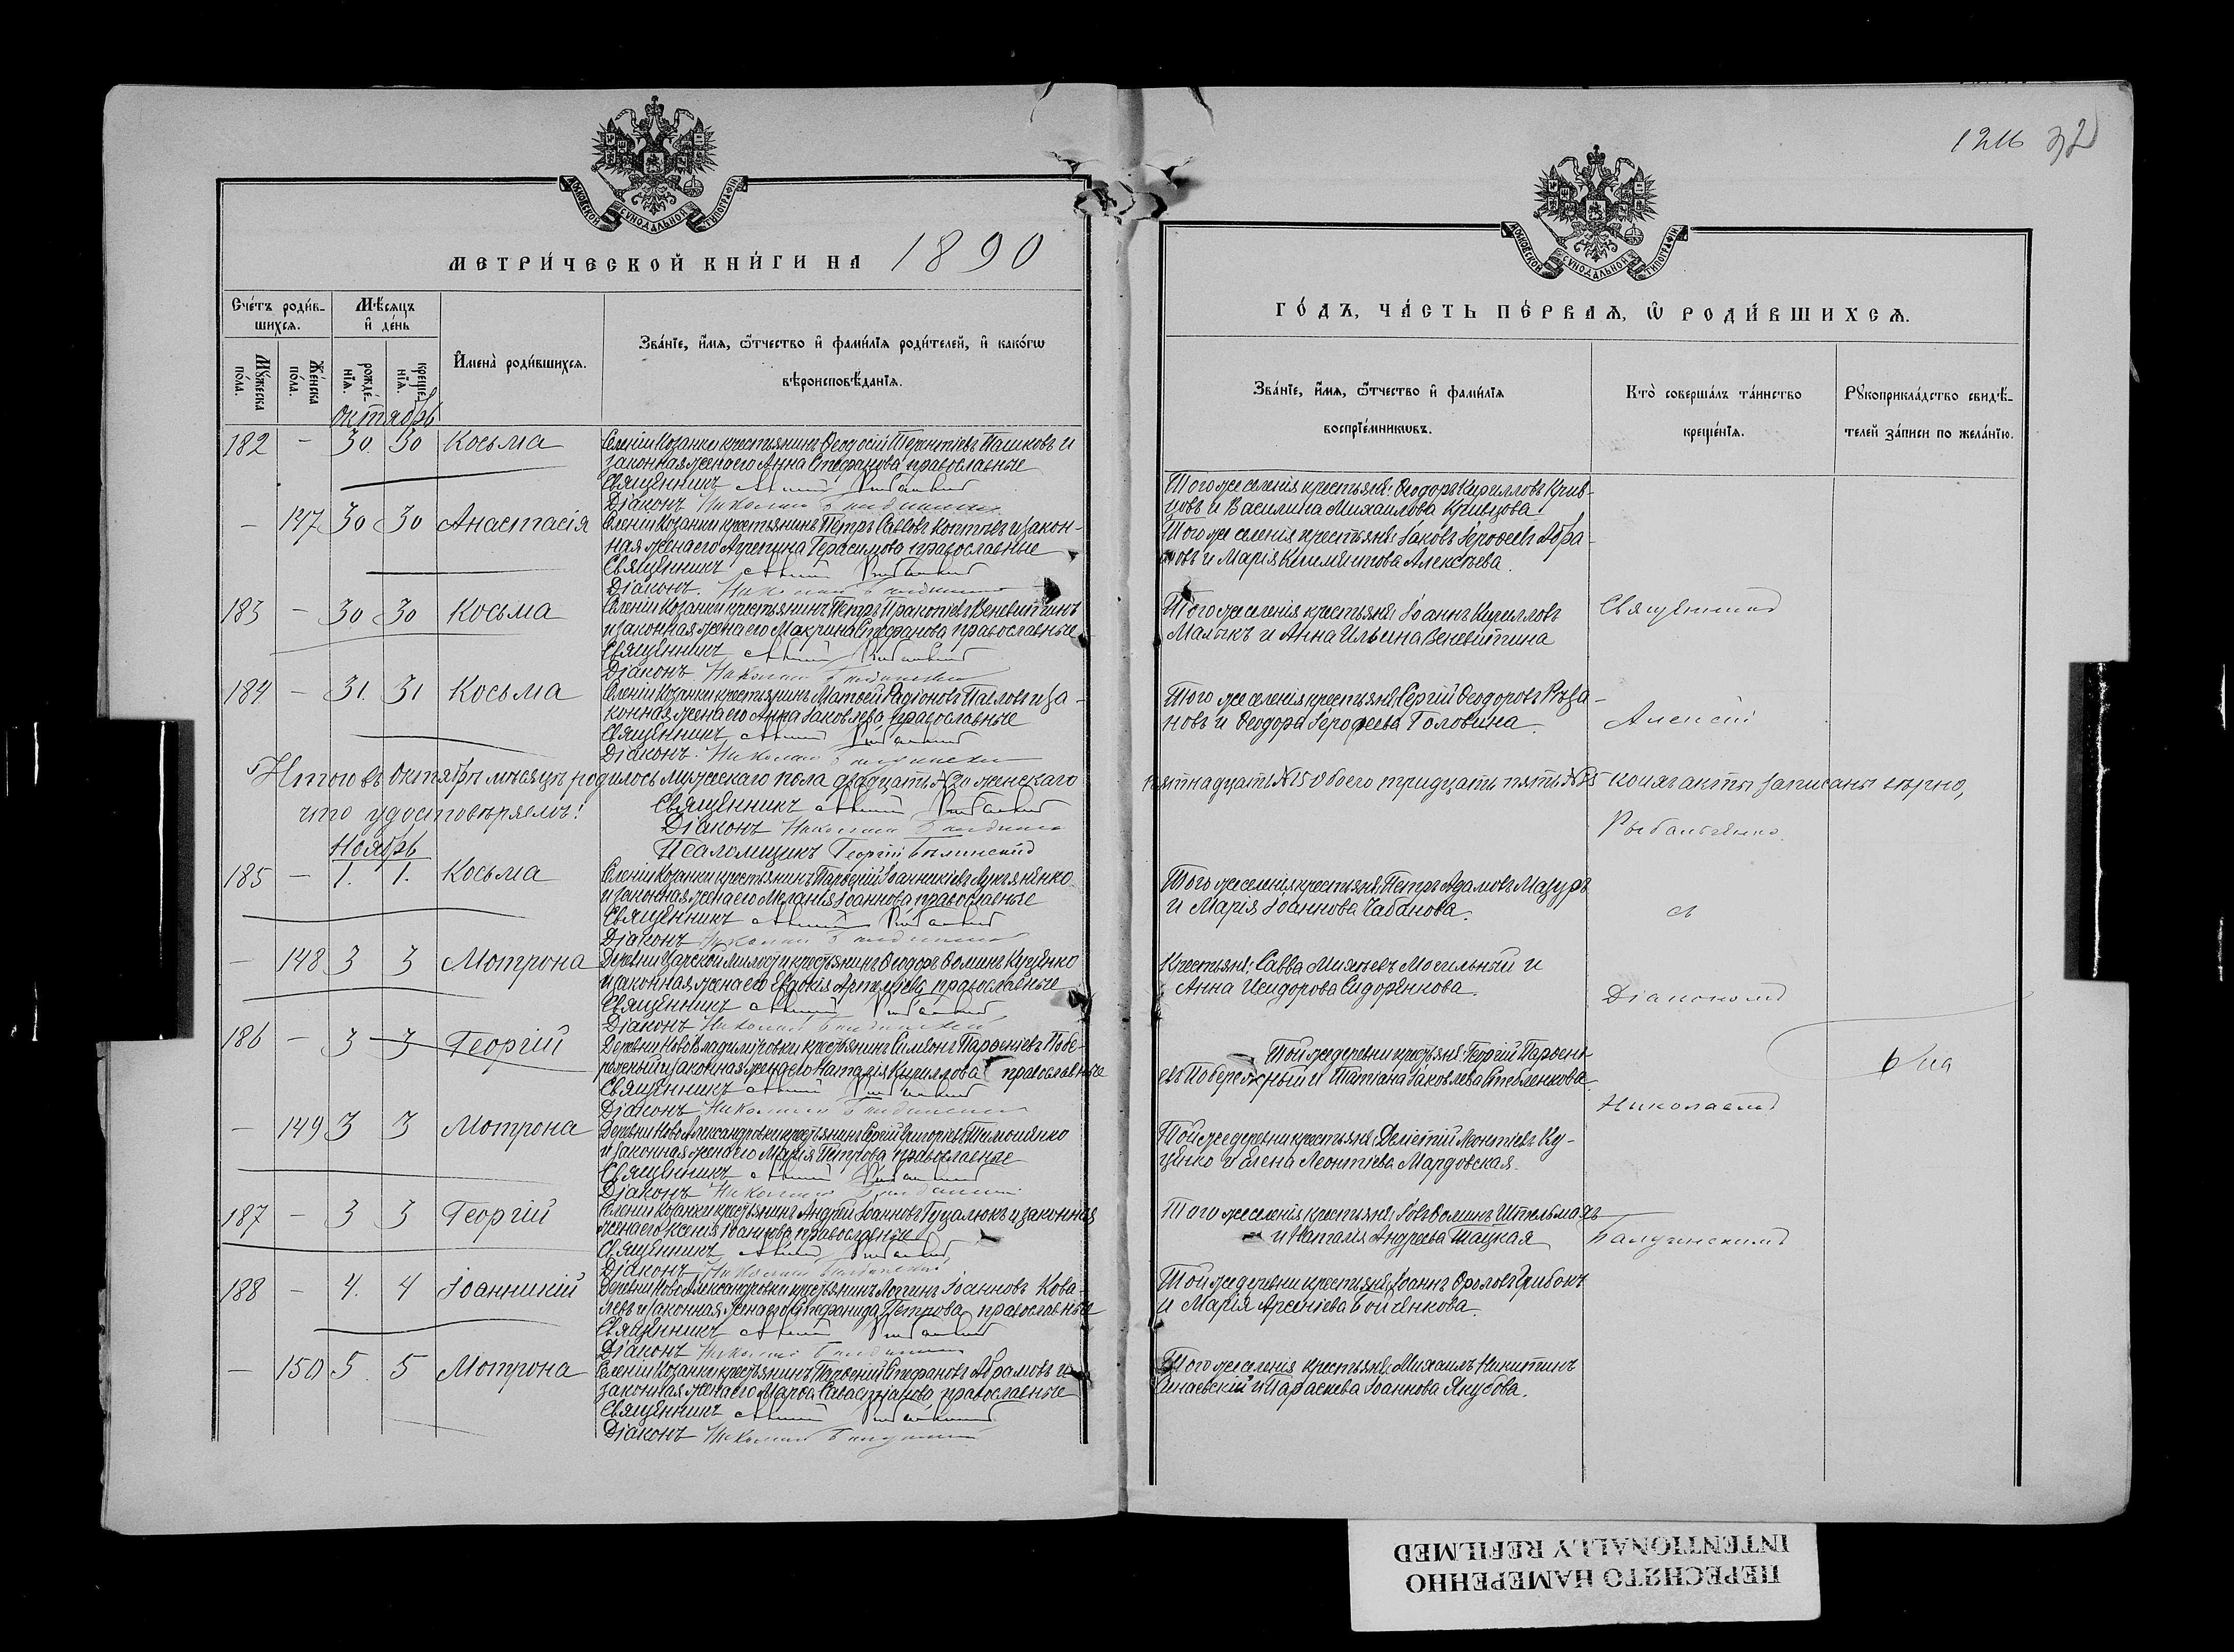 1216 32
МОСКОВСКОЙ СУНОДАЛЬНОЙ ТИПОГРАФІИ
МЕТРИ́ЧЕСКОЙ КНИ́ГИ НА 1890
Сче́тъ роди́в-
шихся.
Мѣ́сяцъ
и҆ де́нь
И҆мена̀ роди́вшихся.
Зва́нїе, и҆́мя, ѻ҆́тчество и҆ фами́лїя роди́телей, и҆ како́гѡ
вѣроисповѣ́данїя.
Мꙋ́жеска
по́ла.
Же́нска
по́ла.
рожде́-
нїя.
креще́-
нїя.
Октябрь
182 – 30. 30 Косьма Селенія Козанки крестьянинъ Ѳеодосій Терентіевъ Пашковъ и
законная жена его Анна Стефанова православные
Священникъ Алексій
Діаконъ Николай
– 147 30 30 Анастасія Селенія Козанки крестьянинъ Петръ Саввовъ и закон-
ная жена его Агрепина Герасимова православные
Священникъ Алексій
Діаконъ. Николай
183 – 30 30 Косьма Селенія Козанки крестьянинъ Петръ Прокопіевъ Веневитинъ
и законная жена его Макрина Стефанова православные
Священникъ Алексій
Діаконъ Николай
184 – 31. 31 Косьма Селенія Козанки крестьянинъ Матѳей Родіоновъ Павловъ и за-
конная жена его Анна Іаковлева православные
Священникъ Алексій
Діаконъ. Николай
Итого въ Октябрѣ мѣсяцѣ родилось мужескаго пола двадцать №20 женскаго
что удостовѣряемъ: Священникъ Алексій
Діаконъ Николай
Псаломщикъ Георгій Бѣлинскій
Ноябрь
185 – 1. 1. Косьма Селенія Козанки крестьянинъ Парѳеній Іоанникіевъ Лукьяненко
и законная жена его Меланія Іоаннова православные
Священникъ Алексій
Діаконъ Николай
– 148 3 3 Мотрона Деревни Царской милости крестьянинъ Ѳеодоръ Ѳоминъ Куценко
и законная жена его Евдокія Артеміева православные
Священникъ Алексій
Діаконъ Николай
186 – 3 3 Георгій Деревни Ново Владиміровки крестьянинъ Симеонъ Парѳеніевъ Побе-
режный и законная жена его Наталія Кириллова православные
Священникъ Алексій
Діаконъ Николай
– 149 3 3 Мотрона Деревни Ново Александровки крестьянинъ Сергій Григоріевъ Тимошенко
и законная жена его Марія Петрова православные
Священникъ Алексій
Діаконъ Николай
187 – 3 3 Георгій Селенія Козанки крестьянинъ Андрей Іоанновъ Гузалюкъ и законная
жена его Ксенія Іоаннова православные
Священникъ Алексій
Діаконъ Николай
188 – 4. 4 Іоанникій Деревни Ново Александровки крестьянинъ Логинъ Іоанновъ Кова-
левъ и законная жена его Стефанида Петрова православные
Священникъ Алексій
Діаконъ Николай
– 150 5. 5 Мотрона Селенія Козанки крестьянинъ Парѳеній Стефановъ Абрамовъ и
законная жена его Марѳа Савастіанова православные
Священникъ Алексій
Діаконъ Николай
МОСКОВСКОЙ СУНОДАЛЬНОЙ ТИПОГРАФІИ
ГО́ДЪ, ЧА́СТЬ ПЕ́РВАѦ, Ѽ РОДИ́ВШИХСѦ.
Зва́нїе, и҆́мя, ѻ҆́тчество и҆ фами́лїя
воспрїе́мникѡвъ.
Кто̀ соверша́лъ та́инство
креще́нїя.
Рꙋкоприкла́дство свидѣ́-
телей за́писи по жела́нїю.
Того же селенія крестьяне: Ѳеодоръ Кирилловъ Крив-
цовъ и Василина Михаилова Кривцова
Того же селенія крестьяне: Іаковъ Іероѳеевъ Абра-
мовъ и Марія Климентова Алексѣева.
Того же селенія крестьяне: Іоаннъ Кирилловъ
Малыкъ и Анна Ильина Веневитина
Священникъ
Того же селенія крестьяне: Сергій Ѳеодоровъ Ряза-
новъ и Ѳеодора Іероѳеева Головина.
Алексій
пятнадцать №15 обоего тридцать пять №35 коихъ акты записаны вѣрно,
Рыбальченко.
Того же селенія крестьяне: Петръ Адамовъ Мазуръ
и Марія Іоаннова Чабанова.
съ
Крестьяне: Савва Михѣевъ Могильный и
Анна Исидорова Сидоренкова.
Діакономъ
Той же деревни крестьяне: Георгій Парѳені-
евъ Побережный и Татіана Іаковлева Стебленкова
Николаемъ
Той же деревни крестьяне: Леонтіевъ Ку-
ценко и Елена Леонтіева Мардовская.
Того же селенія крестьяне: Іовъ Ѳоминъ Штельмахъ
и Наталія Андреева Тацкая
Той же деревни крестьяне: Іоаннъ Фроловъ Грибокъ
и Марія Арсеніева Бойченкова.
Того же селенія крестьяне: Михаилъ Никитинъ
и Параскева Іоаннова Якубова.
ПЕРЕСНЯТО НАМЕРЕННО
INTENTIONALLY REFILMED